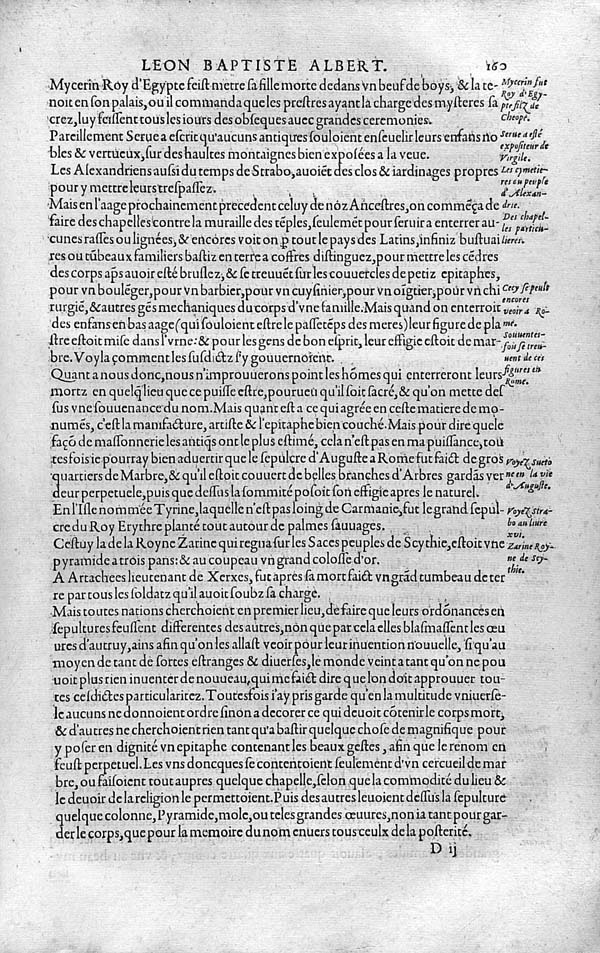 LEON BAPTISTE ALBERT. 160
Mycerin Roy d'Egypte feist mettre sa fille morte dedans vn beuf de boys, & la te-
noit en son palais, ou il commanda que les prestres ayant la charge des mysteres sa
crez, luy feissent tous les iours des obseques auec grandes ceremonies.
Pareillement Serue a escrit qu'aucuns antiques souloient enseuelir leurs enfans no
bles & vertueux, sur des haultes montaignes bien exposées a la veue.
Les Alexandriens aussi du temps de Strabo, auoiẽt des clos & iardinages propres
pour y mettre leurs trespassez.
Mais en l'aage prochainement precedent celuy de nóz Ancestres, on commẽça de
faire des chapelles contre la muraille des tẽples, seulemẽt pour seruir a enterrer au-
cunes rasses ou lignées, & encores voit on ꝑ tout le pays des Latins, infiniz bustuai
res ou tũbeaux familiers bastiz en terre a coffres distinguez, pour mettre les cẽdres
des corps aps auoir esté bruslez, & se treuuẽt sur les couuercles de petiz epitaphes,
pour vn boulẽger, pour vn barbier, pour vn cuysinier, pour vn oĩgtier, pour vn chi
rurgië, & autres gẽs mechaniques du corps d'vne famille. Mais quand on enterroit
des enfans en bas aage (qui souloient estre le passetẽps des meres) leur figure de pla
stre estoit mise dans l'vrne: & pour les gens de bon esprit, leur effigie estoit de mar-
bre. Voyla çomment les susdictz s'y gouuernoient.
Quant a nous donc, nous n'improuuerons point les hõmes qui enterreront leurs
mortz en quelq̃ lieu que ce puisse estre, pourueu qu'il soit sacré, & qu'on mette des
sus vne souuenance du nom. Mais quant est a ce qui agrée en ceste matiere de mo-
numẽs, c'est la manifacture, artiste & l'epitaphe bien couché. Mais pour dire quele
façõ de massonnerie les antiq̃s ont le plus estimé, cela n'est pas en ma puissance, tou
tesfois ie pourray bien aduertir que le sepulcre d'Auguste a Rome fut faict de gros
quartiers de Marbre, & qu'il estoit couuert de belles branches d'Arbres gardãs ver
deur perpetuele, puis que dessus la sommité posoit son effigie apres le naturel.
En l'Isle nommée Tyrine, laquelle n'est pas loing de Carmanie, fut le grand sepul-
cre du Roy Erythre planté tout autour de palmes sauuages.
Cestuy la de la Royne Zarine qui regna sur les Saces peuples de Scythie, estoit vne
pyramide a trois pans: & au coupeau vn grand colosse d'or.
A Artachees lieutenant de Xerxes, fut apres sa mort faict vn grãd tumbeau de ter
re par tous les soldatz qu'il auoit soubz sa charge.
Mais toutes nations cherchoient en premier lieu, de faire que leurs ordõnances en
sepultures feussent differentes des autres, non que par cela elles blasmassent les œu
ures d'autruy, ains afin qu'on les allast veoir pour leur inuention nouuelle, si qu'au
moyen de tant de sortes estranges & diuerses, le monde veint a tant qu'on ne pou
uoit plus rien inuenter de nouueau, qui me faict dire que lon doit approuuer tou-
tes cesdictes particularitez. Toutesfois i'ay pris garde qu'en la multitude vniuerse-
le aucuns ne donnoient ordre sinon a decorer ce qui deuoit cõtenir le corps mort,
& d'autres ne cherchoient rien tant qu'a bastir quelque chose de magnifique pour
y poser en dignité vn epitaphe contenant les beaux gestes, afin que le renom en
feust perpetuel. Les vns doncques se contentoient seulement d'vn cercueil de mar
bre, ou faisoient tout aupres quelque chapelle, selon que la commodité du lieu &
le deuoir de la religion le permettoient. Puis des autres leuoient dessus la sepulture
quelque colonne, Pyramide, mole, ou teles grandes œuures, non ia tant pour gar-
der le corps, que pour la memoire du nom enuers tous ceulx de la posterité.
D ij
Mycerin fut
Roy d'Egy-
pte filz de
Cheope.
Serue a esté
expositeur de
Virgile.
Les cymetie-
res au peuple
d'Alexan-
drie.
Des chapel-
les particu-
lieres.
Cecy se peult
encores
veoir a Ro-
me.
Souuentes-
fois se treu-
uent de ces
figures en
Rome.
Voyez Sueto
ne en la vie
d'Auguste.
Voyez Stra-
bo au liure
xvi.
Zarine Roy-
ne de Scy-
thie.